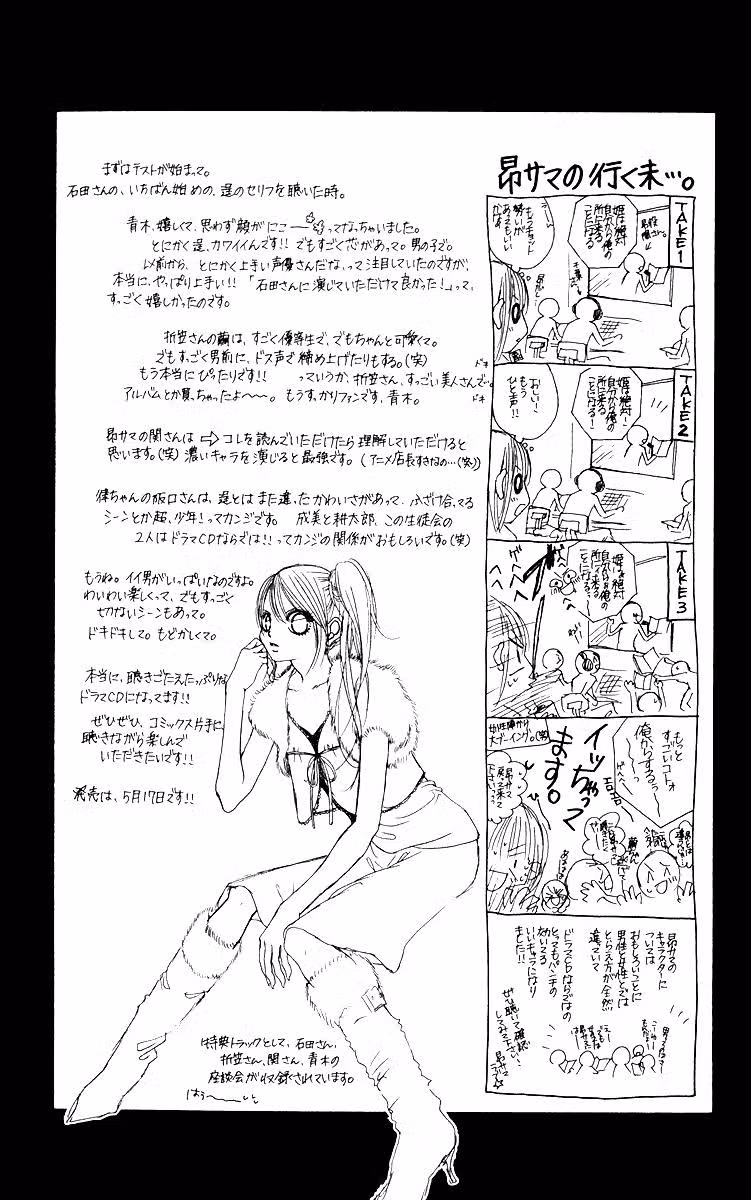 まずはテストが始まって。
石田さんの、いちばん始めの、遥のセリフを聴いた時。
青木、嬉しくて、思わず顔がにこーーってなっちゃいました。
とにかく遥、カワイイんです!! でもすごく芯があって。男の子で。
以前から、とにかく上手い声優さんだな、って注目していたのですが、
本当に、やっぱり上手い!! 「石田さんに演じていただけて良かった!」って、
すっごく嬉しかったのです。
折笠さんの繭は、すごく優等生で、でもちゃんと可愛くて。
でもすっごく男前に、ドス声で締め上げたりもする。(笑)
もう本当にぴったりです!! っていうか、折笠さん、すっごい美人さんで…。
ドキ
ドキ
アルバムとか買っちゃったよ〜〜。もうすっかりファンです、青木。
昴サマの関さんは ⇨ コレを読んでいただけたら理解していただけると
思います。(笑) 濃いキャラを演じると最強です。(アニメ店長すきなの…(笑))
傑ちゃんの阪口さんは、遥とはまた違ったかわいさがあって、ふざけ合ってる
シーンとか超、少年!ってカンジです。 成美と耕太郎、この生徒会の
2人はドラマCDならでは!!ってカンジの関係がおもしろいです。(笑)
もうね。イイ男がいっぱいなのですよ。
わいわい楽しくって、でもすっごく
切ないシーンもあって。
ドキドキして。もどかしくて。
本当に、聴きごたえたっぷりな
ドラマCDになってます!!
ぜひぜひ、コミックス片手に
聴きながら楽しんで
いただきたいです!!
発売は、5月17日です!!
特典トラックとして、石田さん、
折笠さん、関さん、青木の
座談会が収録されています。
はぅ〜〜
昴サマの行く末…。
TAKE1
姫は絶対
自分から俺の
所に来る
ことになる
もうチョット
勢いが
あってもいい
かなぁ
TAKE2
姫は絶対!
自分から俺の
所に来る
ことになる!
おしい!
もう
ひと声!!
TAKE3
姫はぁ絶対
自分からぁ俺の
所に来る
ことになるぅ
ゲヘヘ
もっと
すっごいコトォ
俺からするぅ〜〜っ
ゲヘヘ
イッちゃって
ます。
女性陣から
大ブーイング。(笑)
昴サマ
戻って来て
下さいっっ
あはは
昴サマの
キャラクターに
ついては
おもしろいことに
男性と女性とでは
とらえ方が全然
違っていて
ドラマCDならではの
とってもパンチの
効いてる
いいキャラになり
ました!!
ぜひ聴いて確認
してみて下さい!
昴サマ
ラブ☆